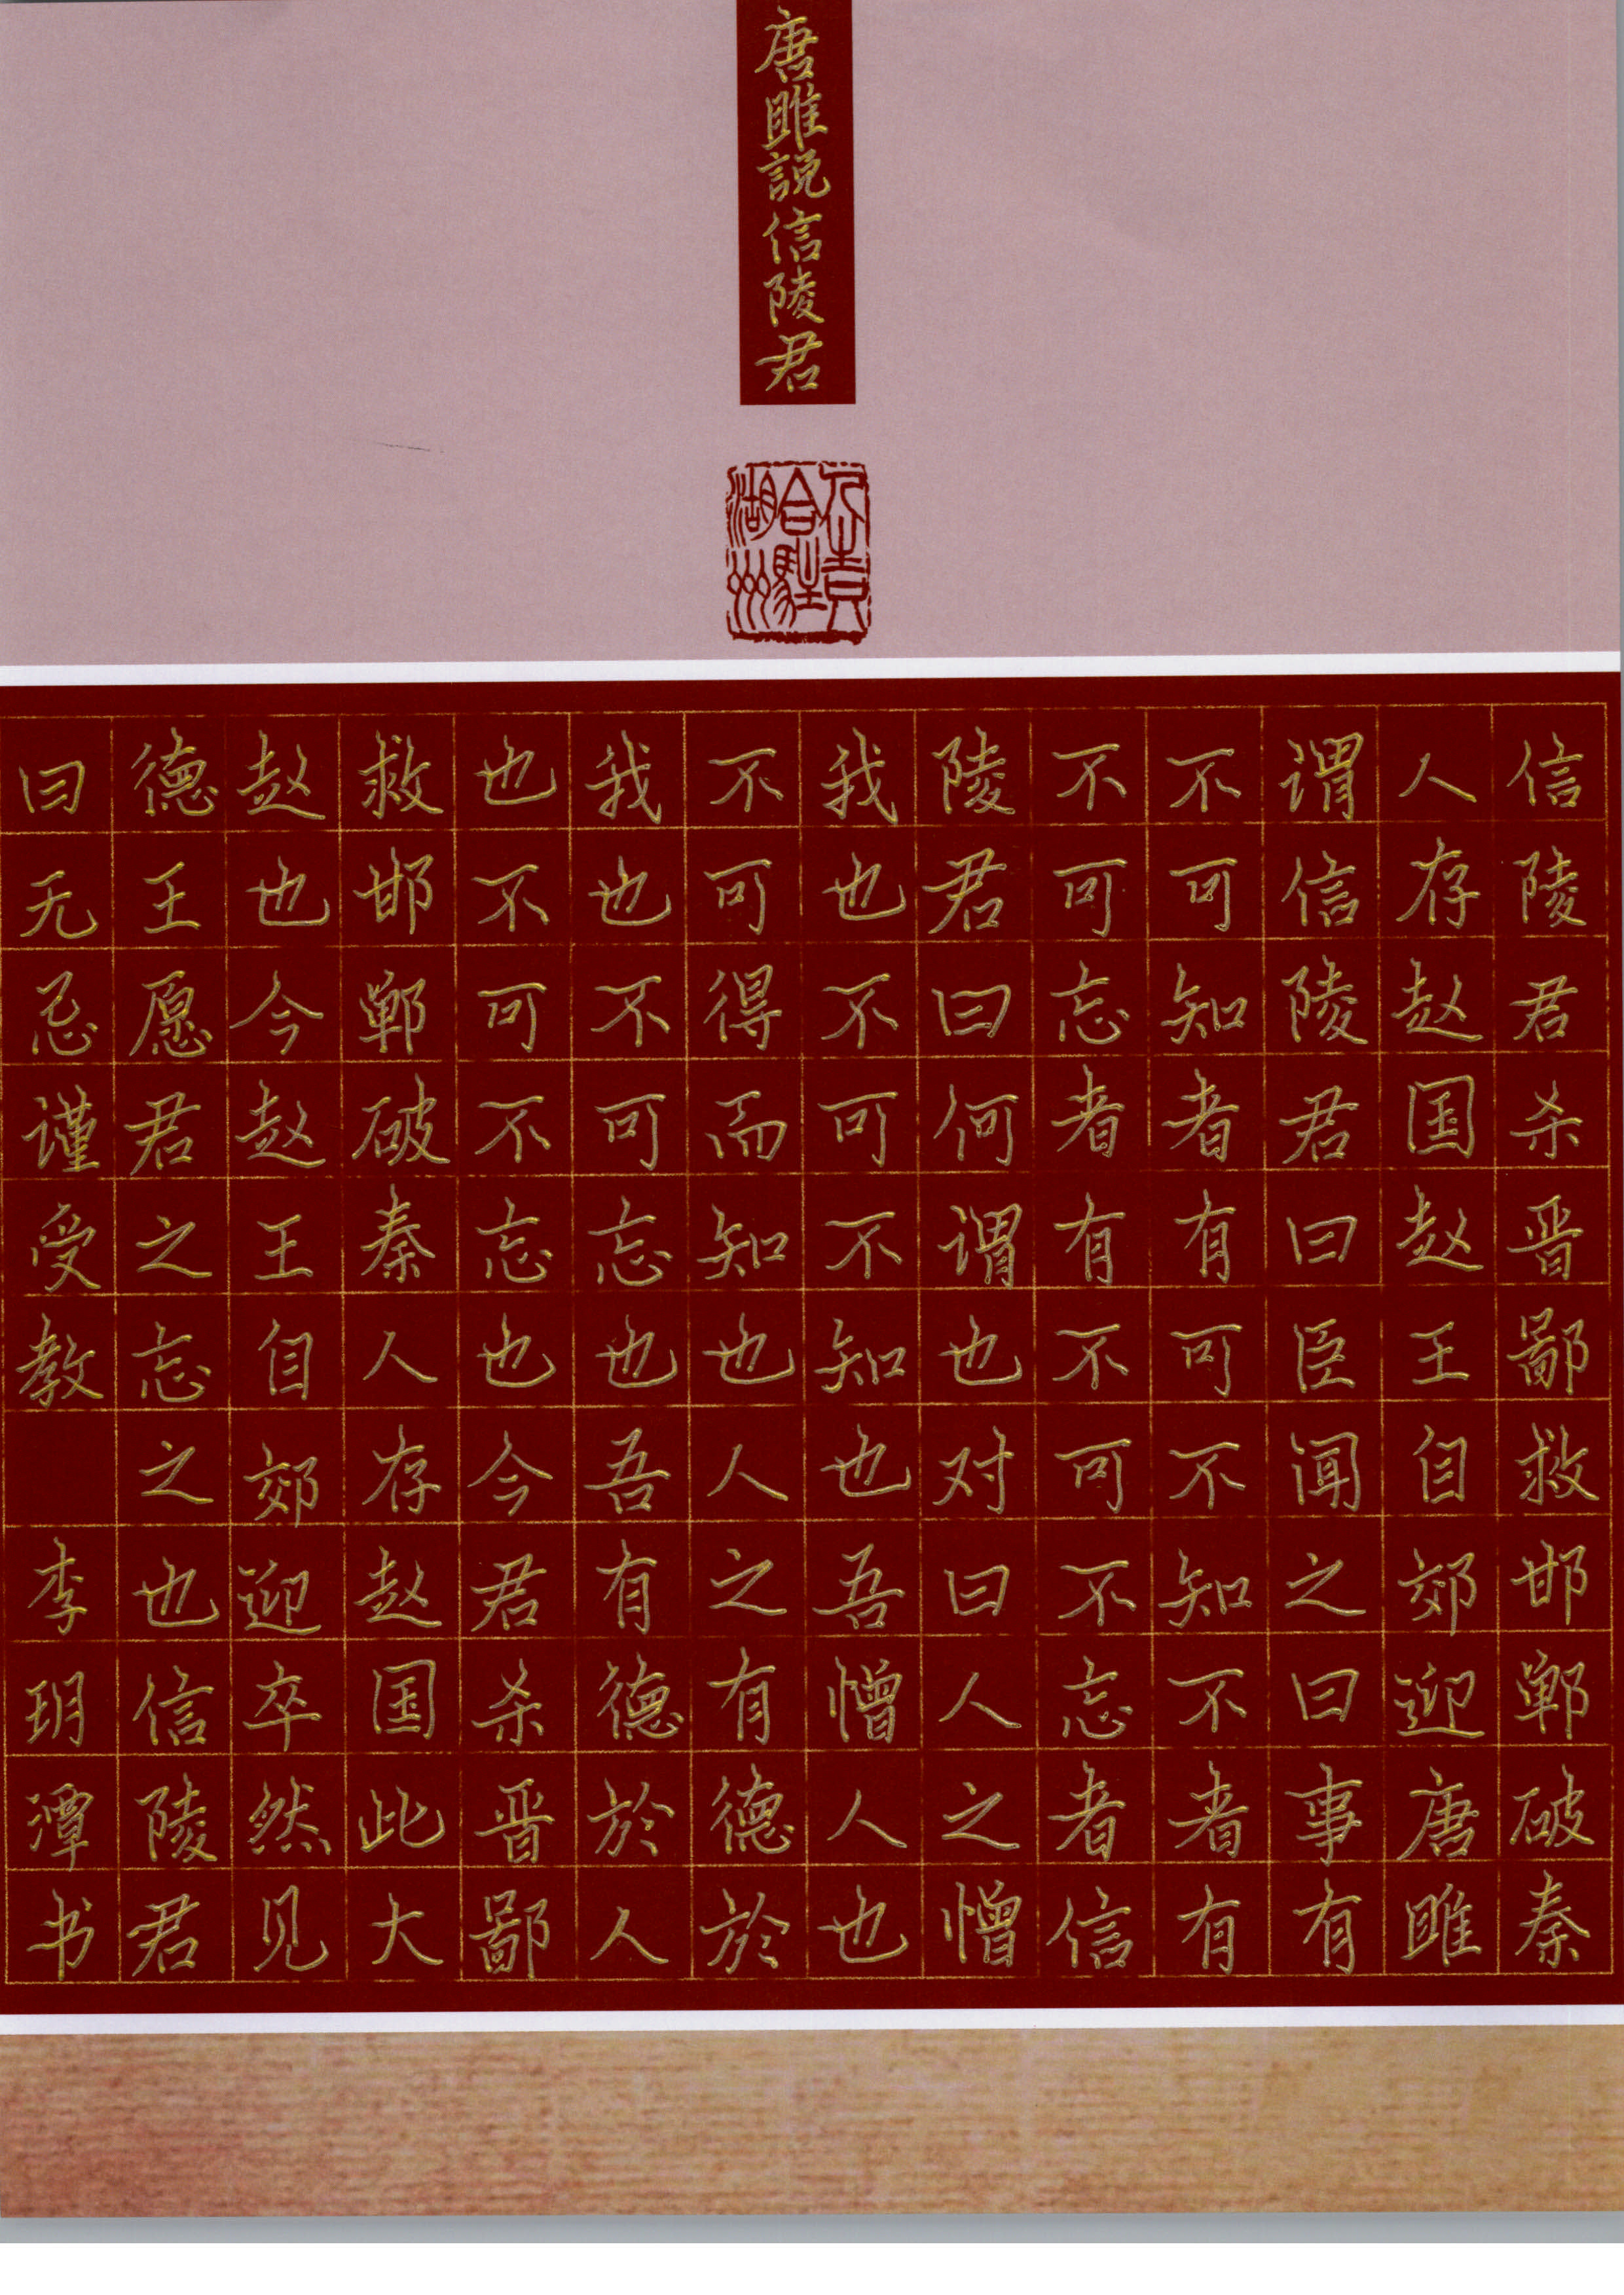 唐雎説信陵君
信陵君杀晋鄙救邯郸破秦
人存赵国赵王自郊迎唐雎
谓信陵君曰臣闻之曰事有
不可知者有可不知不者有
不可忘者有不可不忘者信
陵君曰何谓也对曰人之憎
我也不可不知也吾憎人也
不可得而知也人之有德於
我也不可忘也吾有德於人
也不可不忘也今君杀晋鄙
救邯郸破秦人存赵国此大
赵也今赵王自郊迎卒然见
德王愿君之忘之也信陵君
曰无忌谨受教 李玥潭书